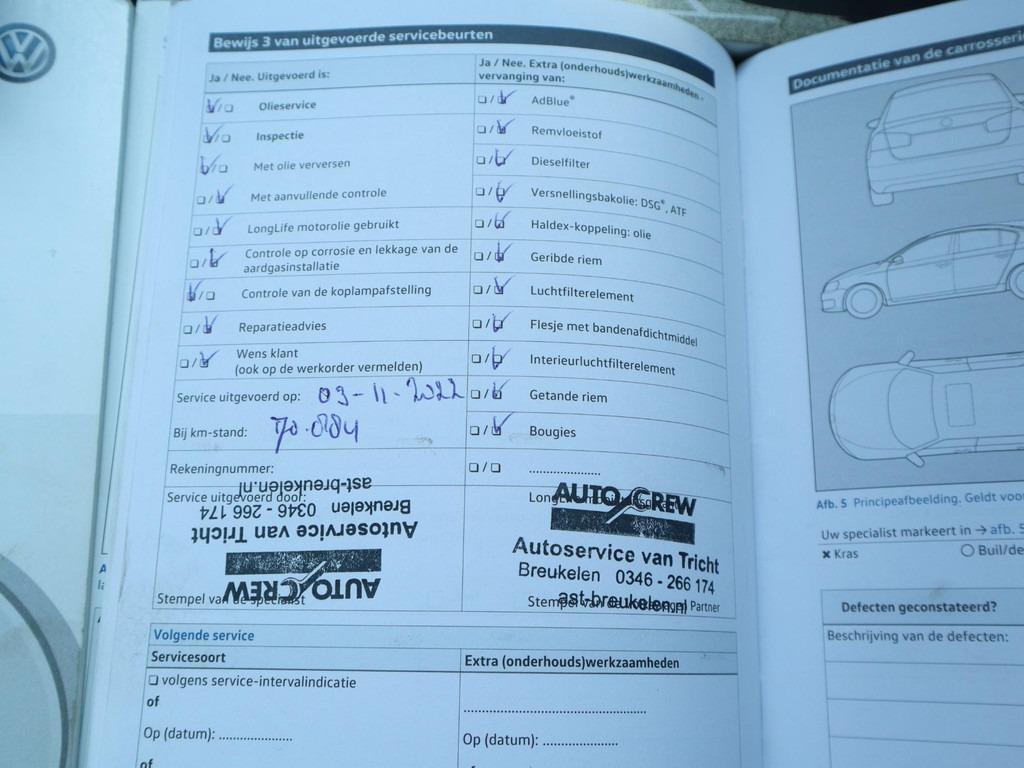 Bewijs 3 van uitgevoerde servicebeurten
Ja / Nee. Uitgevoerd is:
Olieservice
Inspectie
Met olie verversen
Met aanvullende controle
LongLife motorolie gebruikt
Controle op corrosie en lekkage van de
aardgasinstallatie
Controle van de koplampafstelling
Reparatieadvies
Wens klant
(ook op de werkorder vermelden)
Service uitgevoerd op: 03-11-2022
Bij km-stand: 70.884
Rekeningnummer:
Service uitgevoerd door:
AUTO CREW
Autoservice van Tricht
Breukelen 0346 - 266 174
ast-breukelen.nl
Stempel van de specialist
Ja / Nee. Extra (onderhouds)werkzaamheden -
vervanging van:
AdBlue®
Remvloeistof
Dieselfilter
Versnellingsbakolie: DSG®, ATF
Haldex-koppeling: olie
Geribde riem
Luchtfilterelement
Flesje met bandenafdichtmiddel
Interieurluchtfilterelement
Getande riem
Bougies
.....................
AUTO CREW
Autoservice van Tricht
Breukelen 0346 - 266 174
ast-breukelen.nl
Stempel van de Partner
Volgende service
Servicesoort
Extra (onderhouds)werkzaamheden
volgens service-intervalindicatie
of
Op (datum): .....................
of
Op (datum): .....................
Documentatie van de carrosserie
Afb. 5 Principeafbeelding. Geldt voor
Uw specialist markeert in → afb. 5
× Kras
Buil/de
Defecten geconstateerd?
Beschrijving van de defecten:
VW